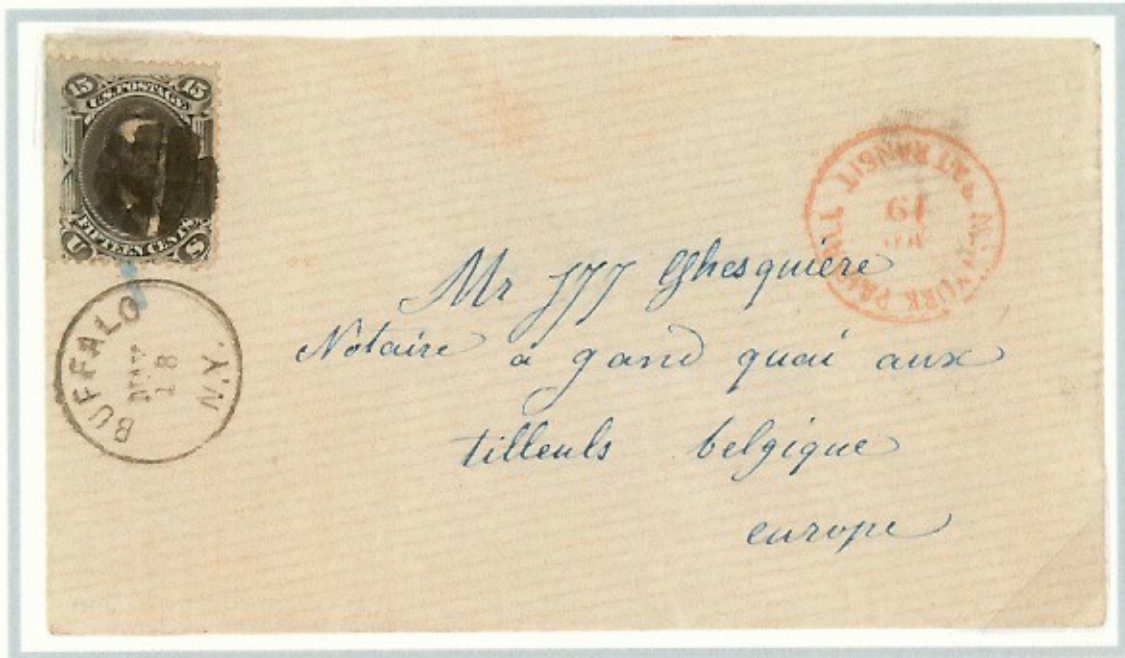 15 15
U.S. POSTAGE.
FIFTEEN CENTS.
U S
BUFFALO N.Y.
MAY
18
NEW YORK PAID ALL
TRANSIT
19
Mr JJJ Ghesquière
Notaire à gand quai aux
tilleuls belgique
europe